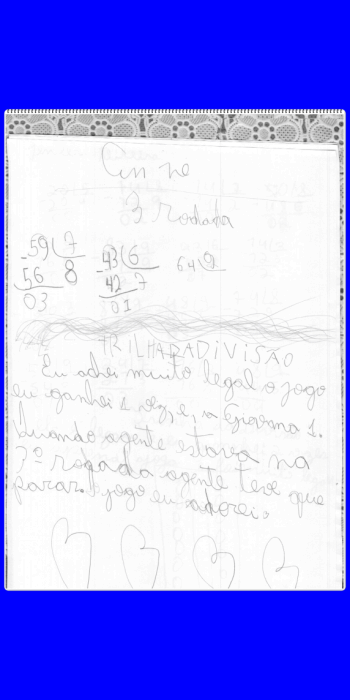 3 rodada
59 7 43 6 64 9
-56 8 -42 7
03 01
TRILHA DA DIVISÃO
Eu achei muito legal o jogo
eu ganhei 1 vez, e, a Giovana 1.
Quando agente estava na
3º rodada agente teve que
parar. jogo eu adorei.